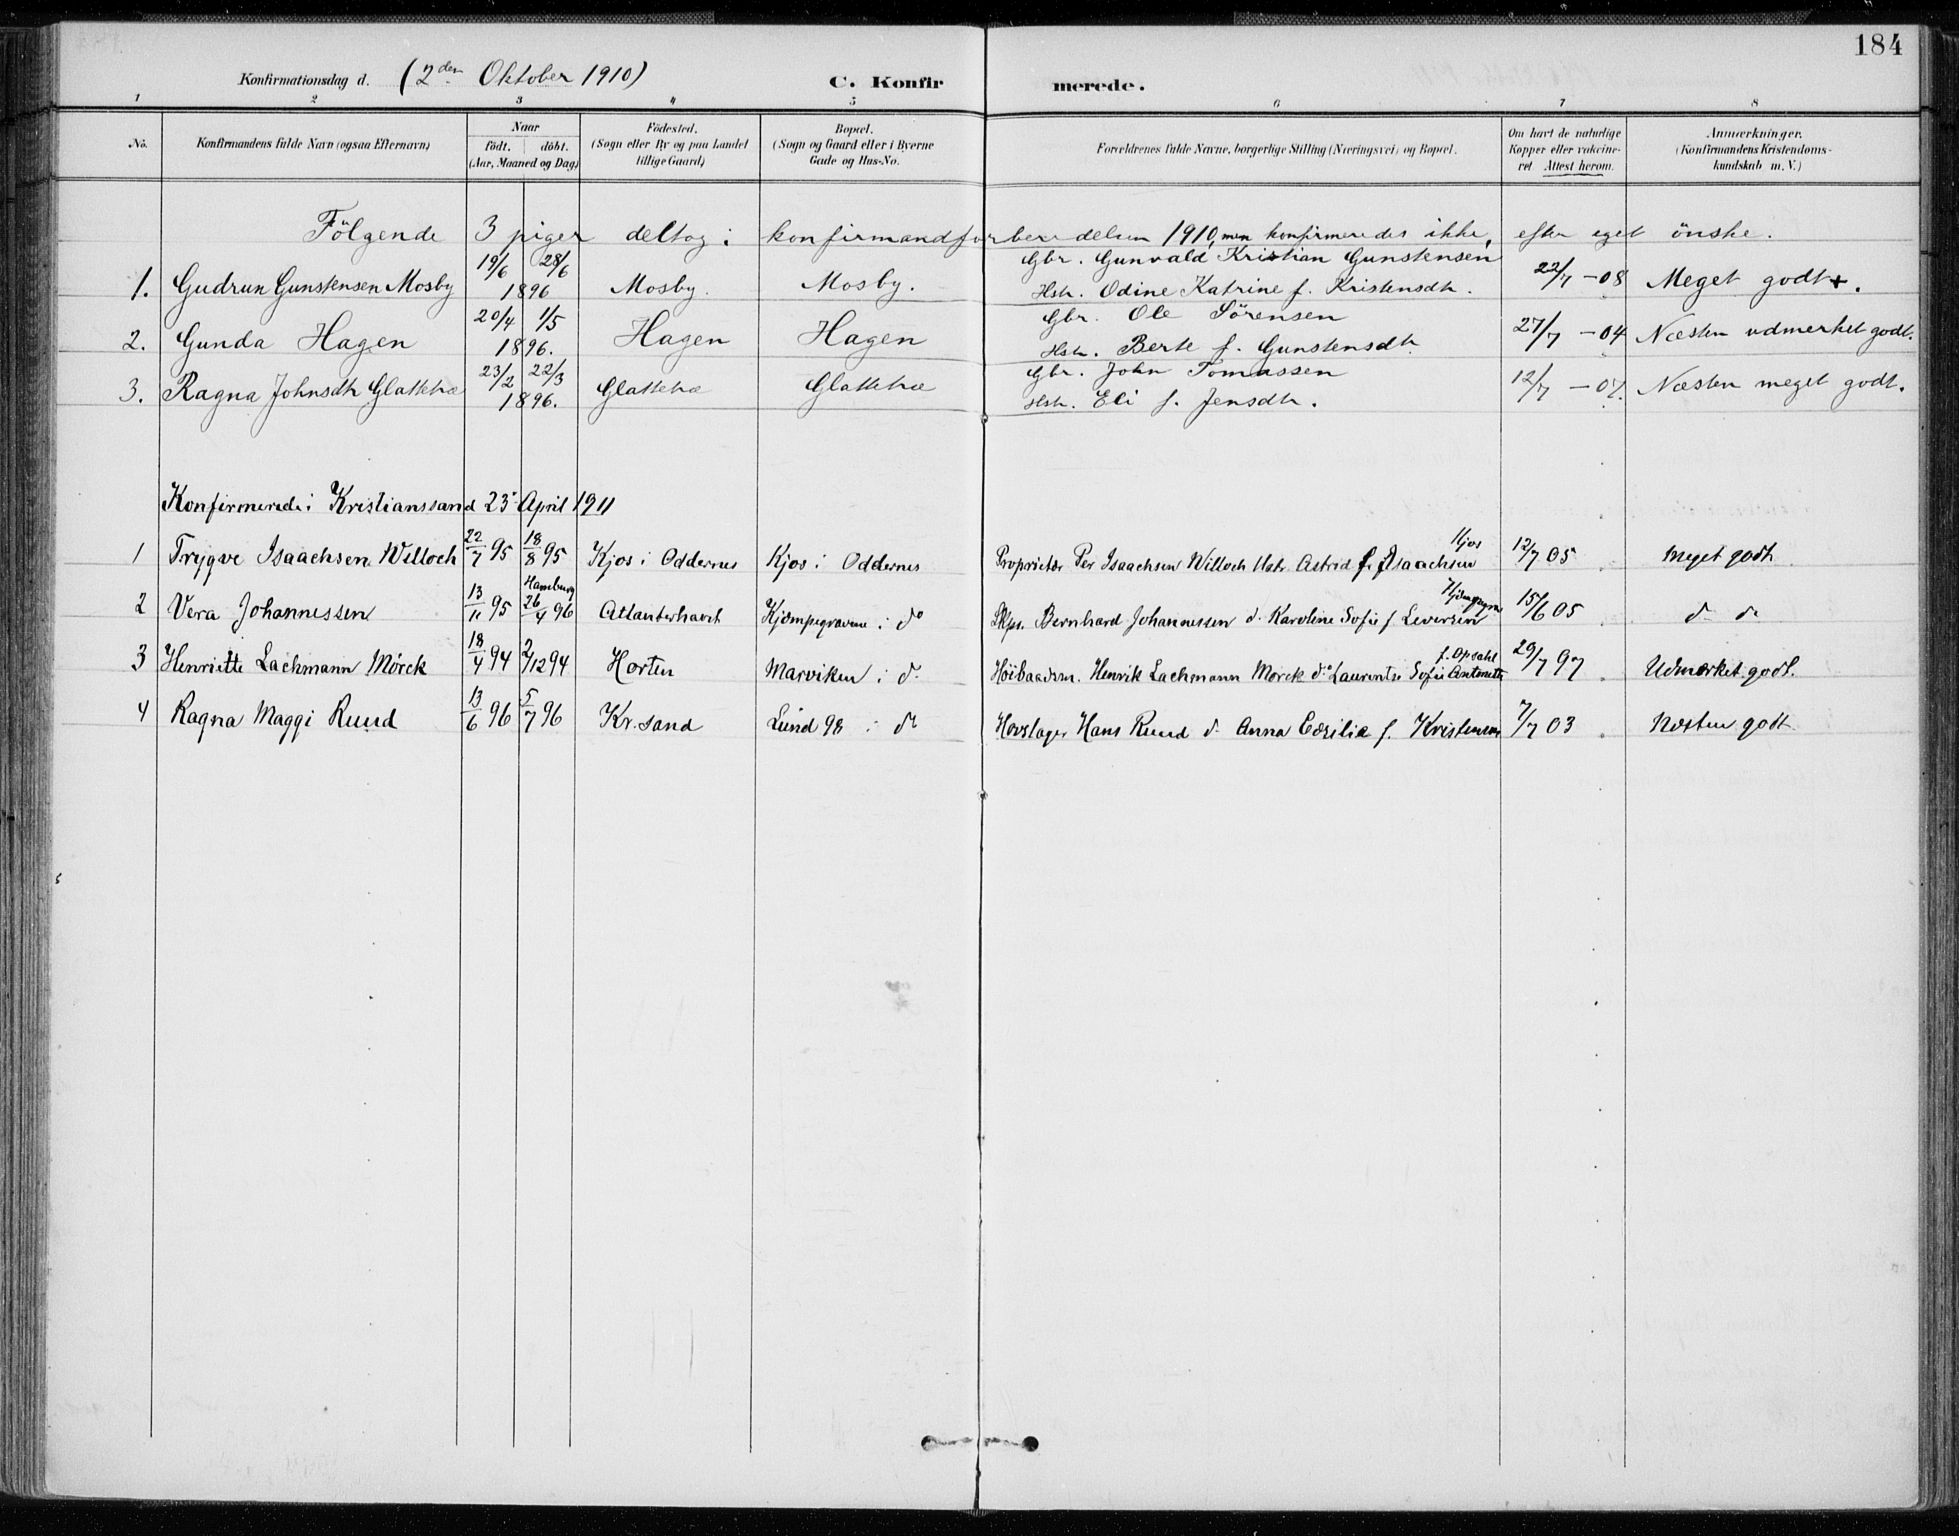 184
Konfirmationsdag d. (2den Oktober 1910)
C. Konfirmerede.
1 2 3 4 5 6 7 8
No. Konfirmandens fulde Navn (ogsaa Efternavn) Naar födt. döbt. (Aar, Maaned og Dag) Födested. (Sogn eller By og paa Landet tillige Gaard) Bopæl. (Sogn og Gaard eller i Byerne Gade og Hus-No. Forældrenes fulde Navne, borgerlige Stilling (Næringsvei) og Bopæl. Om havt de naturlige Kopper eller vaccineret Attest herom. Anmærkninger. (Konfirmandens Kristendomskundskab m. V.)
Fölgende 3 piger deltog i konfirmandforberedelsen 1910, men konfirmeredes ikke, efter eget önske.
1. Gudrun Gunstensen Mosby 19/6 28/6 1896 Mosby. Mosby. Gbr. Gunvald Kristian Gunstensen Hstr. Odine Katrine f. Kristensdtr. 22/7 – 08 Meget godt +.
2. Gunda Hagen 20/4 1/5 1896. Hagen Hagen Gbr. Ole Sörensen Hstr. Berte f. Gunstensdtr. 27/7 – 04 Næsten udmerket godt.
3. Ragna Johnsdtr Glattetræ 23/2 22/3 1896. Glattetræ Glattetræ Gbr. John Tomassen Hstr. Eli f. Jensdtr. 12/7 – 07. Næsten meget godt.
Konfirmerede i Kristianssand 23' April 1911
1 Trygve Isaachsen Willoch 22/7 95 18/8 95 Kjos i Oddernes Kjos i Oddernes Proprietær Per Isaachsen Willoch Hstr. Astrid f. Isaachsen Kjos 12/7 05 Meget godt
2 Vera Johannessen 13/11 95 Hamburg 26/4 96 Atlanterhavet Kjempegravene i do Skps. Bernhard Johannessen d. Karoline Sofie f. Leversen 15/6 05 d. d.
3 Henriette Lachmann Mörck 18/4 94 2/12 94 Horten Marviken i do Höibaadsm. Henrik Lachmann Mörck do Laurentse Sofie Antonette f. Opsahl 29/7 97 Udmærket godt.
4 Ragna Maggi Ruud 13/6 96 5/7 96 Kr.sand Lund 98 i do Hovslager Hans Ruud d. Anna Cæsilie f. Kristensen 7/7 03 Næsten godt